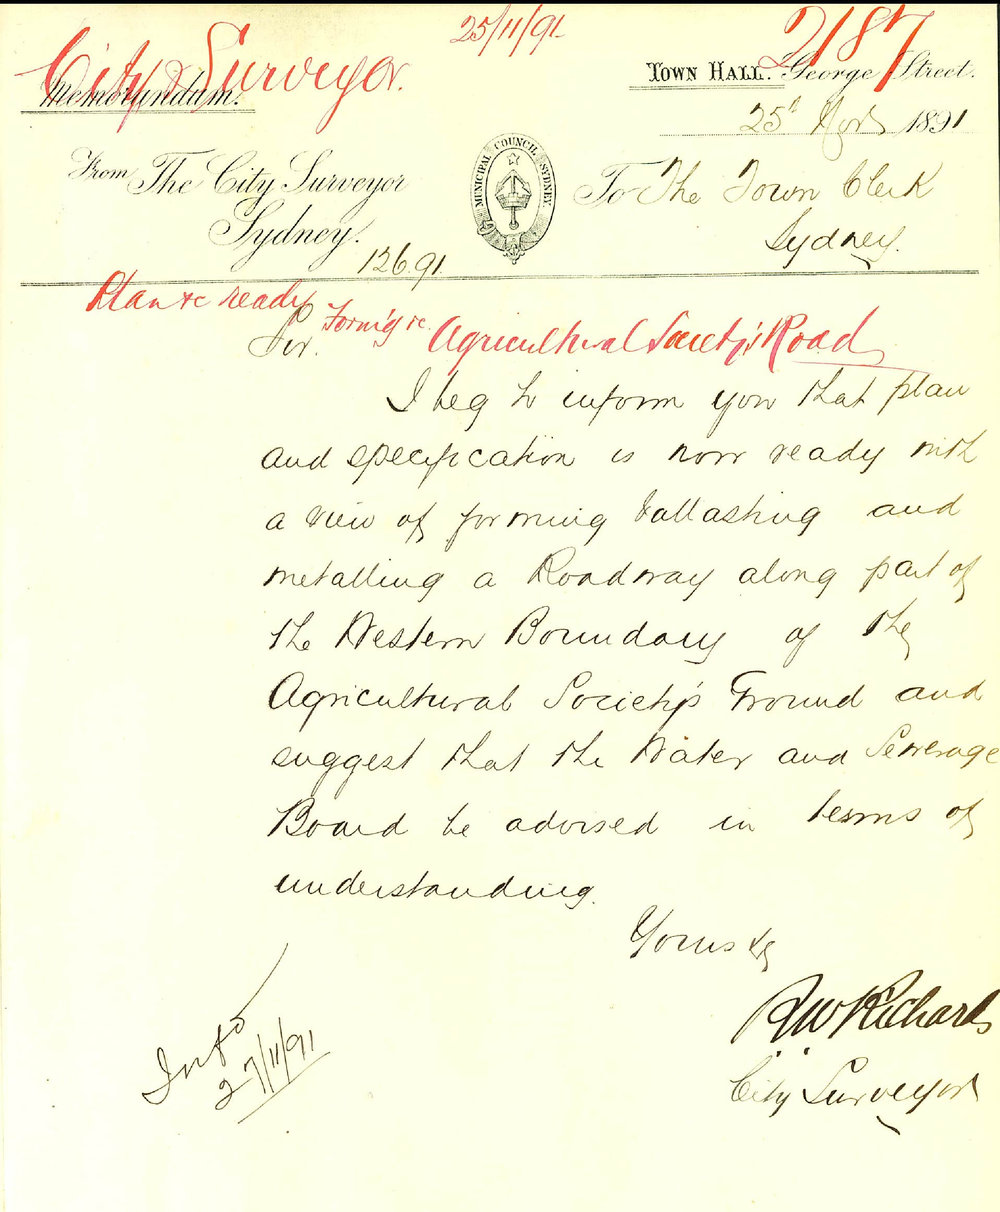 25/11/91
2187
City Surveyor.
Memorandum.
TOWN HALL. George Street.
25th Novr 1891
MUNICIPAL COUNCIL SYDNEY.
From The City Surveyor
Sydney.
To The Town Clerk
Sydney.
126.91
Plan &c ready
Form'g &c. Agricultural Society's Road
Sir.
I beg to inform you that plan
and specification is now ready with
a view of forming ballasting and
metalling a Roadway along part of
the Western Boundary of the
Agricultural Society's Ground and
suggest that the Water and Sewerage
Board be advised in terms of
understanding.
Yours &c
RW Richards
City Surveyor
27/11/91